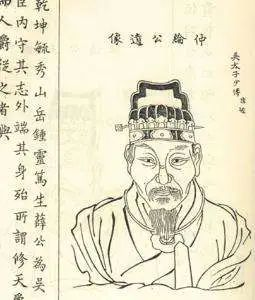 吳太子少傅
仲綸公遺像
乾坤毓秀山岳鍾靈篤生薛公為吳
臣內守其志外端其身殆所謂修天爵
而人爵從之者與